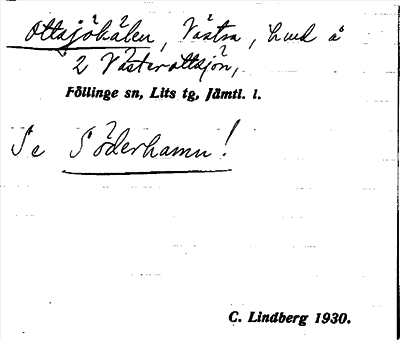 Ottsjökälen, Västra, hmd å
2 Västerottsjön,
Föllinge sn, Lits tg, Jämtl. l.
Se Söderhamn!
C. Lindberg 1930.